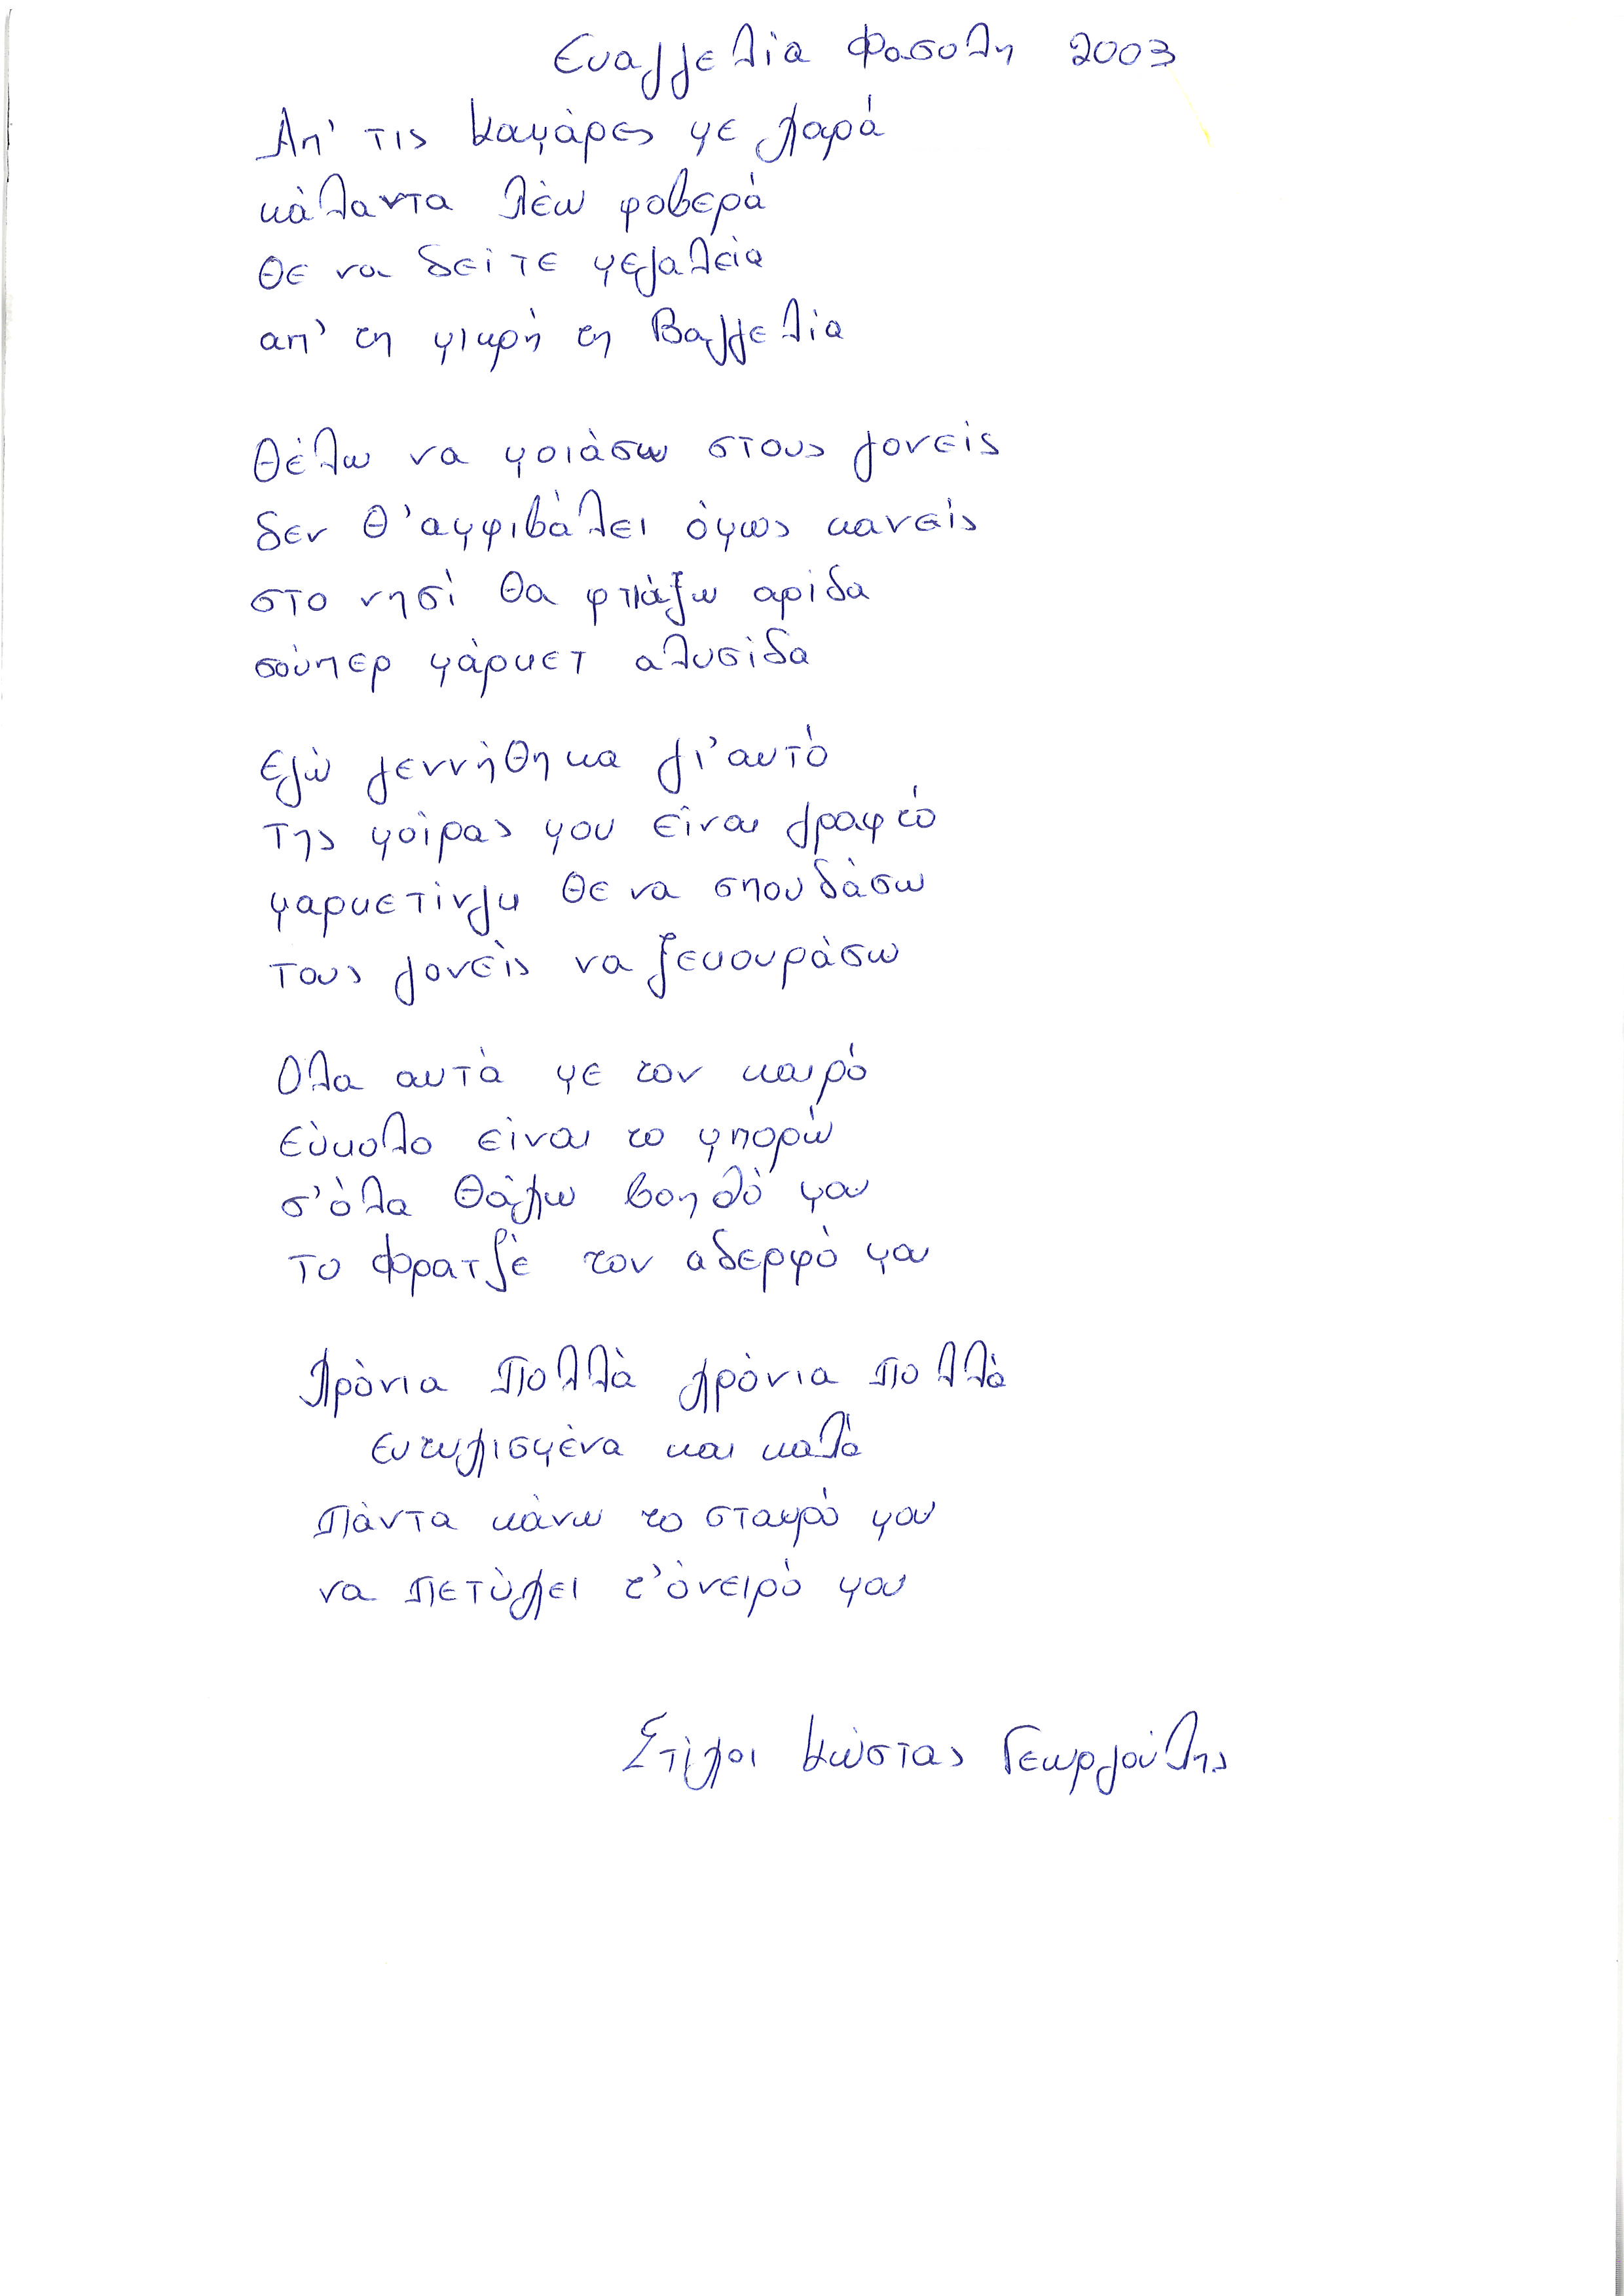 Ευαγγελία Φασολη 2003
Απ' τις Καμάρες με χαρά
κάλαντα λέω φοβερά
θε να δείτε μεγαλεία
απ' τη μικρή τη Βαγγελία
Θέλω να μοιάσω στους γονείς
δεν θ'αμφιβάλει όμως κανείς
στο νησί θα φτιάξω αρίδα
σούπερ μάρκετ αλυσίδα
Εγώ γεννήθηκα γι'αυτό
της μοίρας μου είναι γραφτό
μαρκετίνγκ θε να σπουδάσω
τους γονείς να ξεκουράσω
Ολα αυτά με τον καιρό
εύκολο είναι το μπορώ
σ'όλα θάχω βοηθό μου
το Φρατζέ τον αδερφό μου
Χρόνια Πολλά χρόνια πολλά
ευτυχισμένα και καλά
Πάντα κάνω το σταυρό μου
να πετύχει τ'όνειρό μου
Στίχοι Κώστας Γεωργούλης